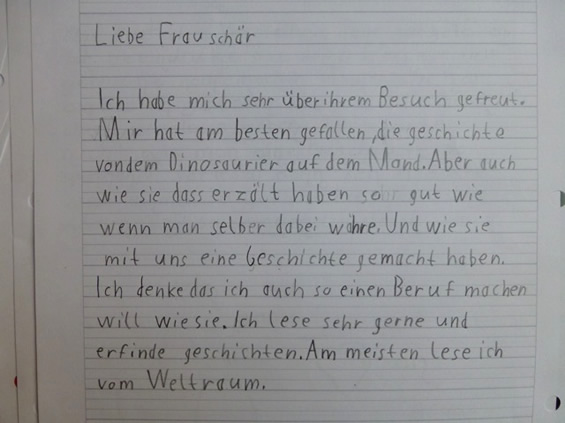 Liebe Frau schär
Ich habe mich sehr über ihrem Besuch gefreut.
Mir hat am besten gefallen, die geschichte
von dem Dinosaurier auf dem Mond. Aber auch
wie sie dass erzält haben so gut wie
wenn man selber dabei währe. Und wie sie
mit uns eine Geschichte gemacht haben.
Ich denke das ich auch so einen Beruf machen
will wie sie. Ich lese sehr gerne und
erfinde geschichten. Am meisten lese ich
vom Weltraum.